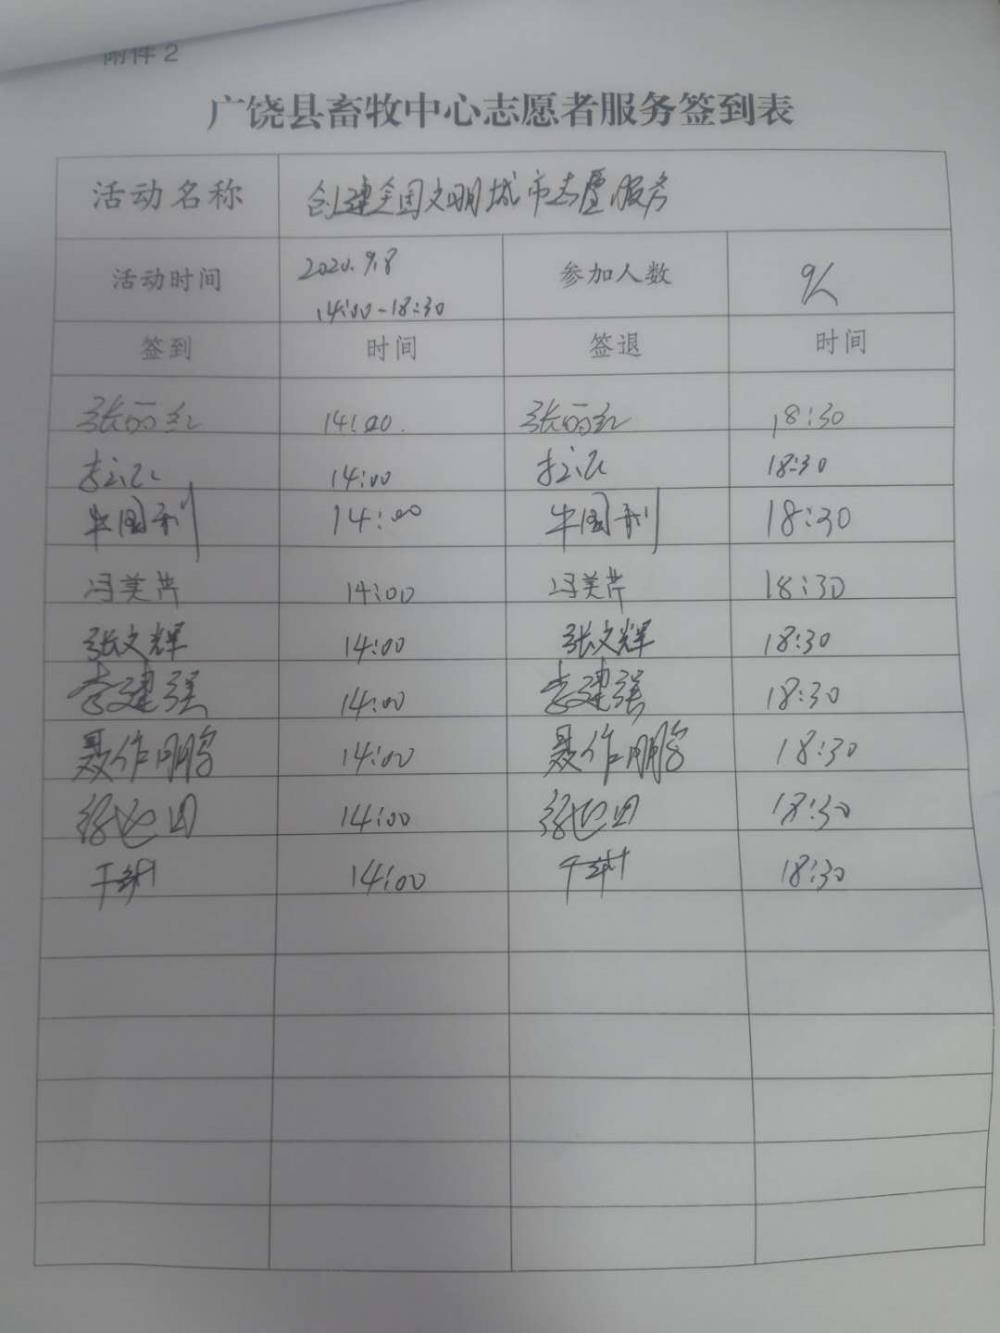 附件2
广饶县畜牧中心志愿者服务签到表
活动名称 创建全国文明城市志愿服务
活动时间 2020.9.8 14:00-18:30 参加人数 9人
签到 时间 签退 时间
张丽红 14:00. 张丽红 18:30
14:00 18:30
牛国利 14:00 牛国利 18:30
冯美芹 14:00 冯美芹 18:30
张文辉 14:00 张文辉 18:30
李建强 14:00 李建强 18:30
聂作鹏 14:00 聂作鹏 18:30
14:00 18:30
14:00 18:30